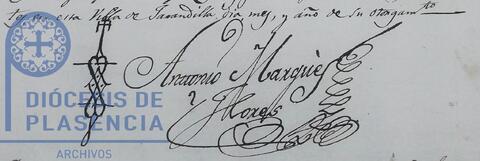 esta Villa de Jarandilla dia mes, y año de su otorgam.to
Antonio Marquès
Flores
DIÓCESIS DE
PLASENCIA
ARCHIVOS